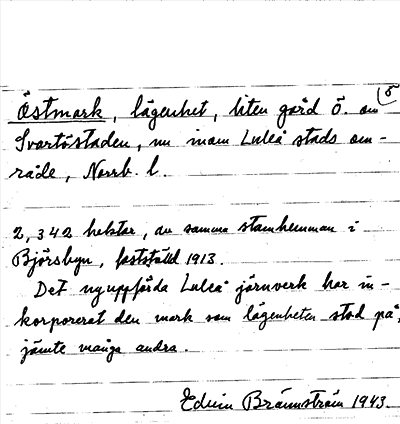 8
Östmark, lägenhet, liten gård ö. om
Svartöstaden, nu inom Luleå stads om-
råde, Norrb. l.
2,342 hektar, av samma stamhemman i
Björsbyn, fastställd 1913.
Det nyuppförda Luleå järnverk har in-
korporerat den mark som lägenheten stod på,
jämte många andra.
Edvin Brännström 1943.